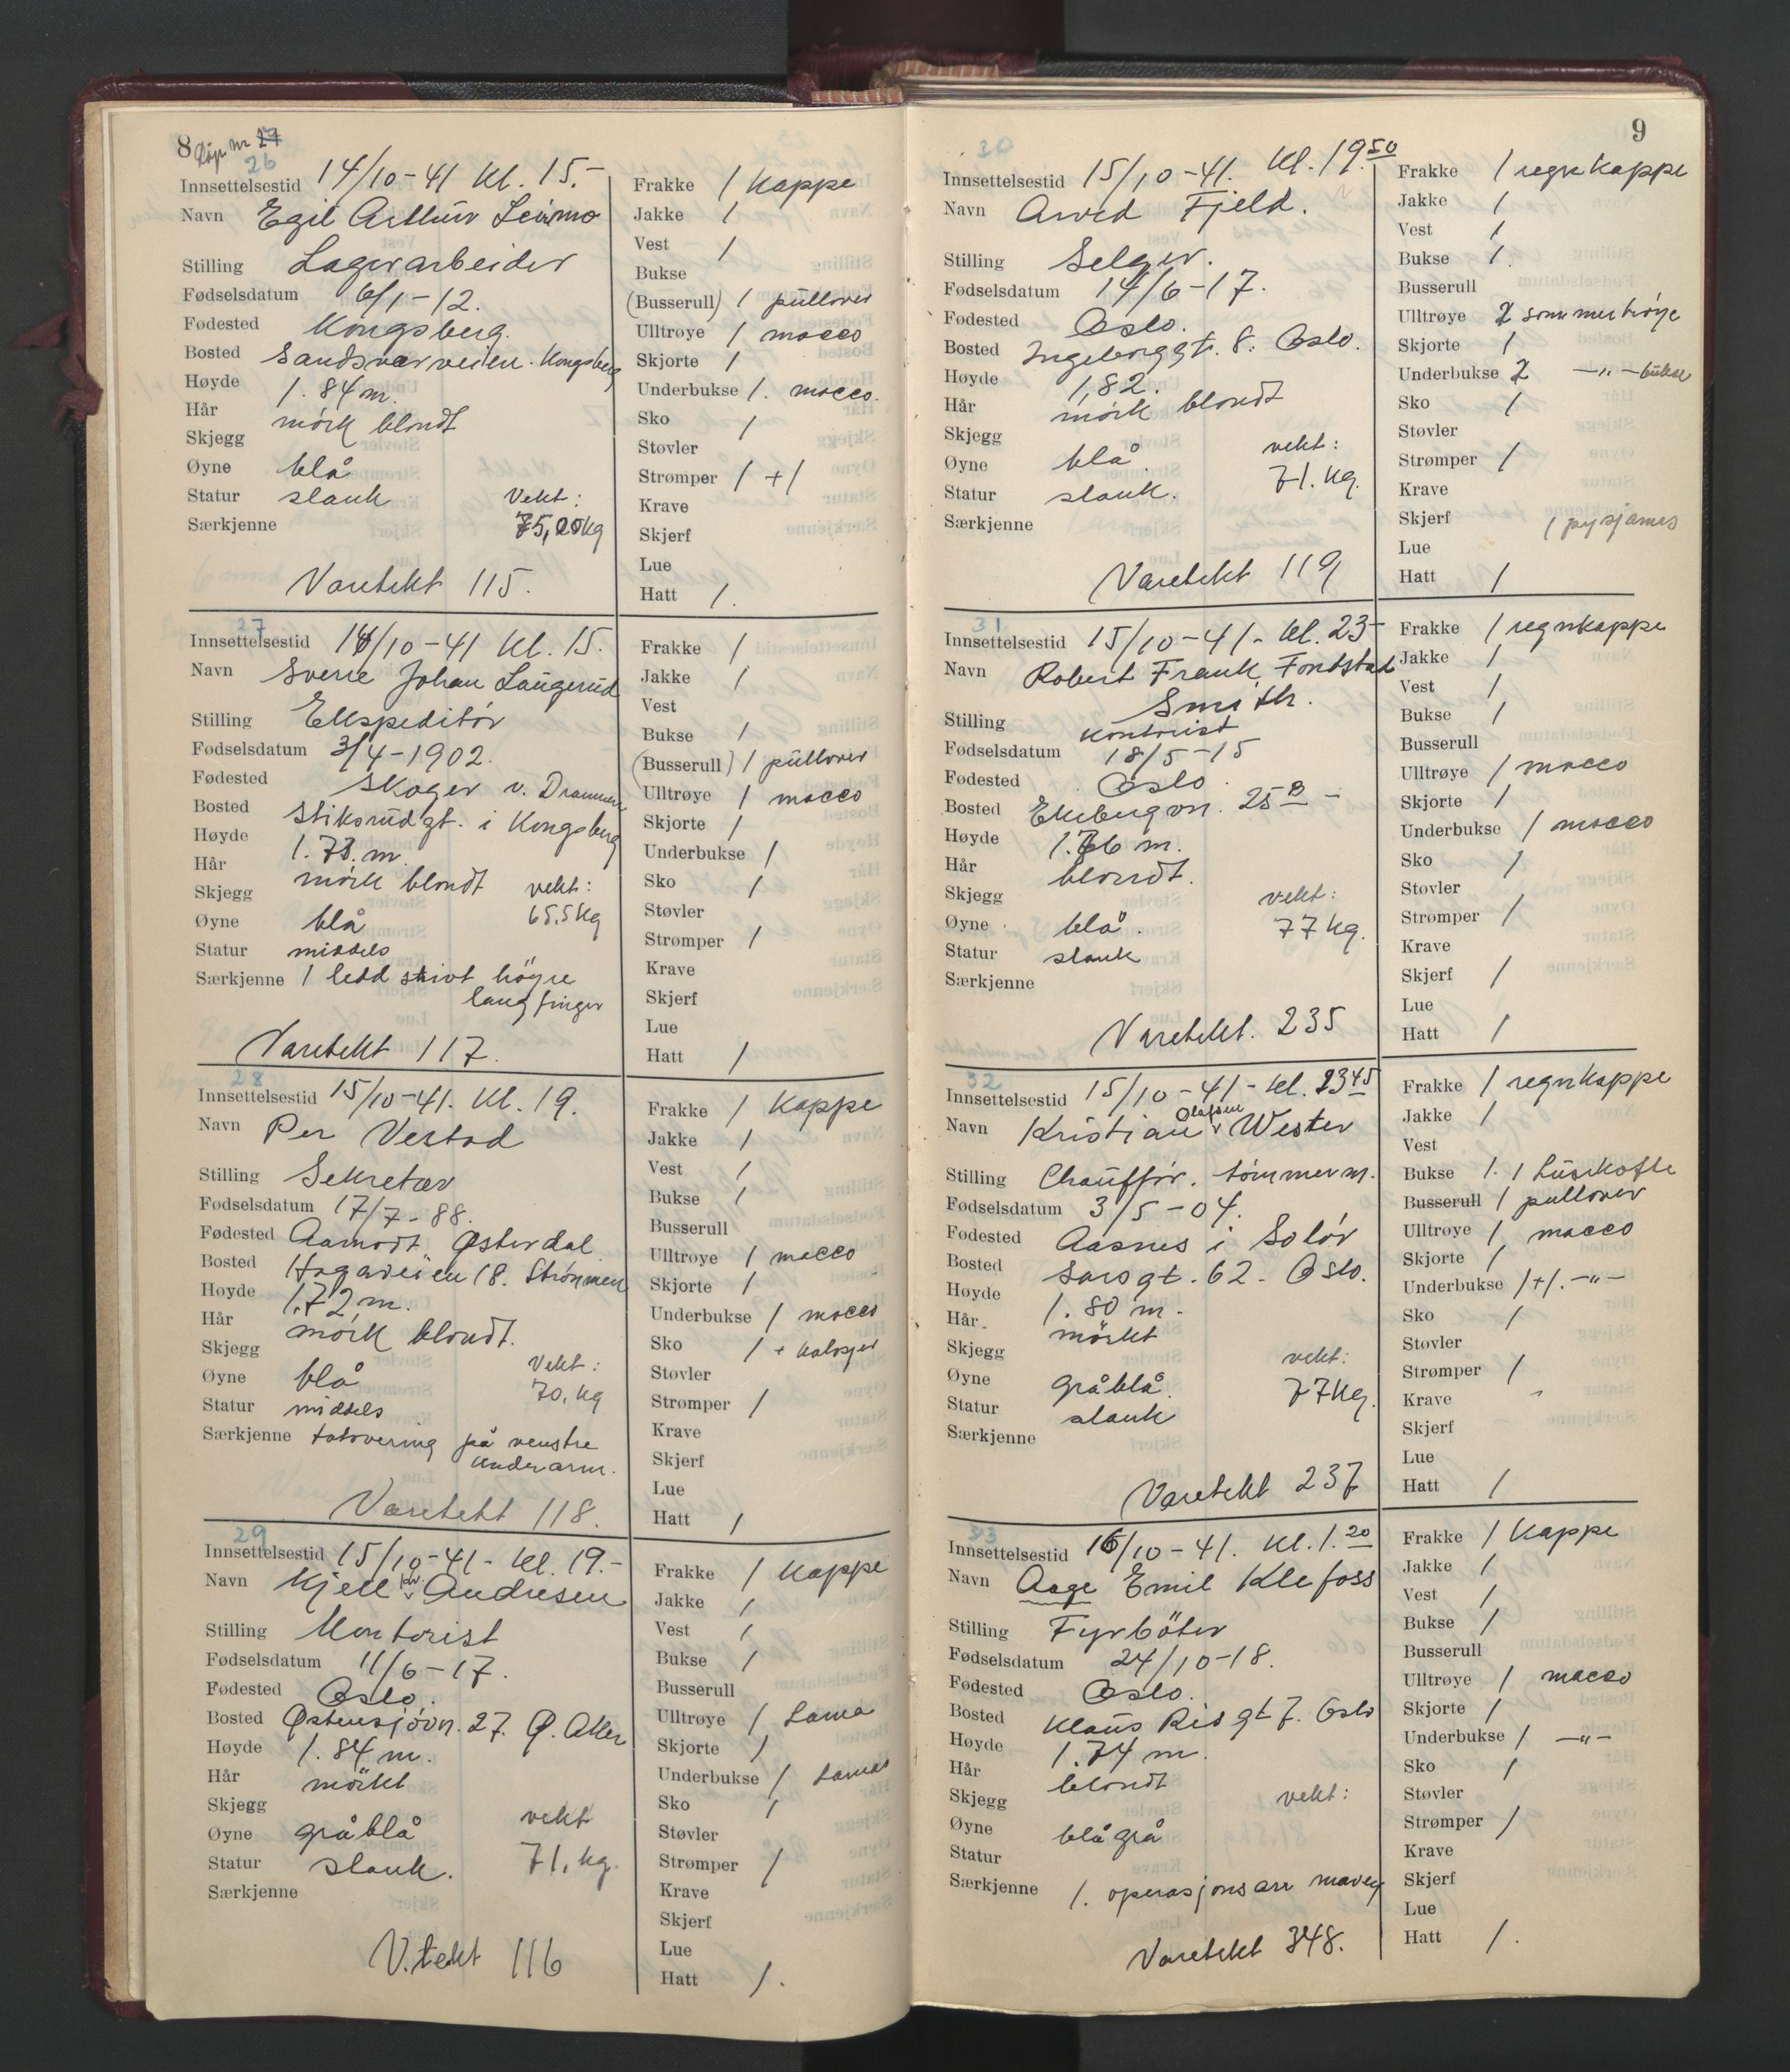 8 Løp nr 27
26
Innsettelsestid 14/10-41 Kl. 15.-
Navn Egil Arthur Leirmo
Stilling Lagerarbeider
Fødselsdatum 6/1-12.
Fødested Kongsberg.
Bosted Sandsværveien. Kongsberg
Høyde 1.84 m.
Hår mörk blondt
Skjegg
Øyne blå
Statur slank Vekt:
Særkjenne 75,20 kg
Varetekt 115.
Frakke 1 Kappe
Jakke 1
Vest 1
Bukse
(Busserull) 1 pullover
Ulltrøye 1 macco
Skjorte 1
Underbukse 1. macco.
Sko 1
Støvler
Strømper 1 + 1
Krave
Skjerf
Lue
Hatt 1.
27
Innsettelsestid 14/10-41 Kl. 15.
Navn Sverre Johan Laugerud
Stilling Ekspeditör
Fødselsdatum 3/4-1902.
Fødested Skoger v. Drammen
Bosted Stiksrudgt. i Kongsberg
Høyde 1.73 m.
Hår mörk blondt vekt:
Skjegg 65.5 kg
Øyne blå
Statur middels
Særkjenne 1 ledd stivt högre
langfinger
Varetekt 117.
Frakke 1
Jakke 1
Vest
Bukse 1
(Busserull) 1 pullover
Ulltrøye 1 macco
Skjorte 1
Underbukse 1
Sko 1
Støvler
Strømper 1
Krave
Skjerf
Lue
Hatt 1
28
Innsettelsestid 15/10-41. Kl. 19.
Navn Per Vestad
Stilling Sekretær
Fødselsdatum 17/7-88.
Fødested Aamodt Østerdal
Bosted Hagaveien 18. Strömmen
Høyde 1.72 m.
Hår mörk blondt.
Skjegg Vekt:
Øyne blå 70. kg
Statur middels
Særkjenne tatovering på venstre
underarm.
Varetekt 118.
Frakke 1 Kappe
Jakke 1
Vest 1
Bukse 1
Busserull
Ulltrøye 1 macco
Skjorte 1
Underbukse 1 macco
Sko 1 + kalosjer
Støvler
Strømper 1
Krave
Skjerf
Lue
Hatt 1
29
Innsettelsestid 15/10-41- Kl. 19.-
Navn Kjell Andresen
Stilling Kontorist
Fødselsdatum 11/6-17.
Fødested Oslo.
Bosted Østensjövn. 27. Ø. Aker
Høyde 1.84 m.
Hår mörkt
Skjegg vekt
Øyne gråblå
Statur slank. 71. kg.
Særkjenne
V.tekt 116
Frakke 1 Kappe
Jakke 1
Vest 1
Bukse 1
Busserull
Ulltrøye 1 Lama
Skjorte 1
Underbukse 1 Lama
Sko 1
Støvler
Strømper 1
Krave
Skjerf
Lue
Hatt 1.
9
30
Innsettelsestid 15/10-41. Kl. 19.50
Navn Arvid Fjeld.
Stilling Selger.
Fødselsdatum 14/6-17.
Fødested Oslo.
Bosted Ingeborggt. 8. Oslo.
Høyde 1,82.
Hår mörk blondt
Skjegg vekt:
Øyne blå. 71. kg.
Statur slank.
Særkjenne
Varetekt 119
Frakke 1 regnkappe
Jakke 1
Vest 1
Bukse 1
Busserull
Ulltrøye 2 sommertröye
Skjorte 1
Underbukse 2 —"— bukse
Sko 1
Støvler
Strømper 1
Krave
Skjerf 1 pysjamas
Lue
Hatt 1
31
Innsettelsestid 15/10-41- Kl. 23-
Navn Robert Frank Fondstad
Smith.
Stilling Kontorist
Fødselsdatum 18/5-15
Fødested Oslo.
Bosted Ekebergvn. 25 B -
Høyde 1.76 m.
Hår blondt.
Skjegg vekt:
Øyne blå. 77 kg.
Statur slank
Særkjenne
Varetekt. 235
Frakke 1 regnkappe
Jakke 1
Vest 1
Bukse 1
Busserull
Ulltrøye 1 macco
Skjorte 1
Underbukse 1 macco
Sko 1
Støvler
Strømper 1
Krave
Skjerf 1
Lue
Hatt 1
32
Innsettelsestid 15/10-41- Kl. 23 45
Olafsen
Navn Kristian v Wester
Stilling Chauffør. tömmerm.
Fødselsdatum 3/5-04.
Fødested Aasnes i Solör
Bosted Sarsgt. 62- Oslo.
Høyde 1.80 m-
Hår mörkt
Skjegg vekt:
Øyne gråblå. 77 kg.
Statur slank
Særkjenne
Varetekt 237
Frakke 1 regnkappe
Jakke 1
Vest
Bukse 1. 1 Lusekofte
Busserull 1 pullover
Ulltrøye 1 macco
Skjorte 1
Underbukse 1+1. —"—
Sko 1
Støvler
Strømper 1
Krave
Skjerf
Lue
Hatt 1
33
Innsettelsestid 16/10-41. Kl. 1.20
Navn Aage Emil Klefoss
Stilling Fyrböter
Fødselsdatum 24/10-18.
Fødested Oslo.
Bosted Klaus Risgt 7. Oslo
Høyde 1.74 m.
Hår blondt
Skjegg vekt:
Øyne blågrå
Statur
Særkjenne 1. operasjonsarr maven
Varetekt 348.
Frakke 1 Kappe
Jakke 1
Vest 1
Bukse 1
Busserull
Ulltrøye 1 macco
Skjorte 1
Underbukse 1 —"—
Sko 1
Støvler
Strømper 1
Krave
Skjerf
Lue
Hatt 1.